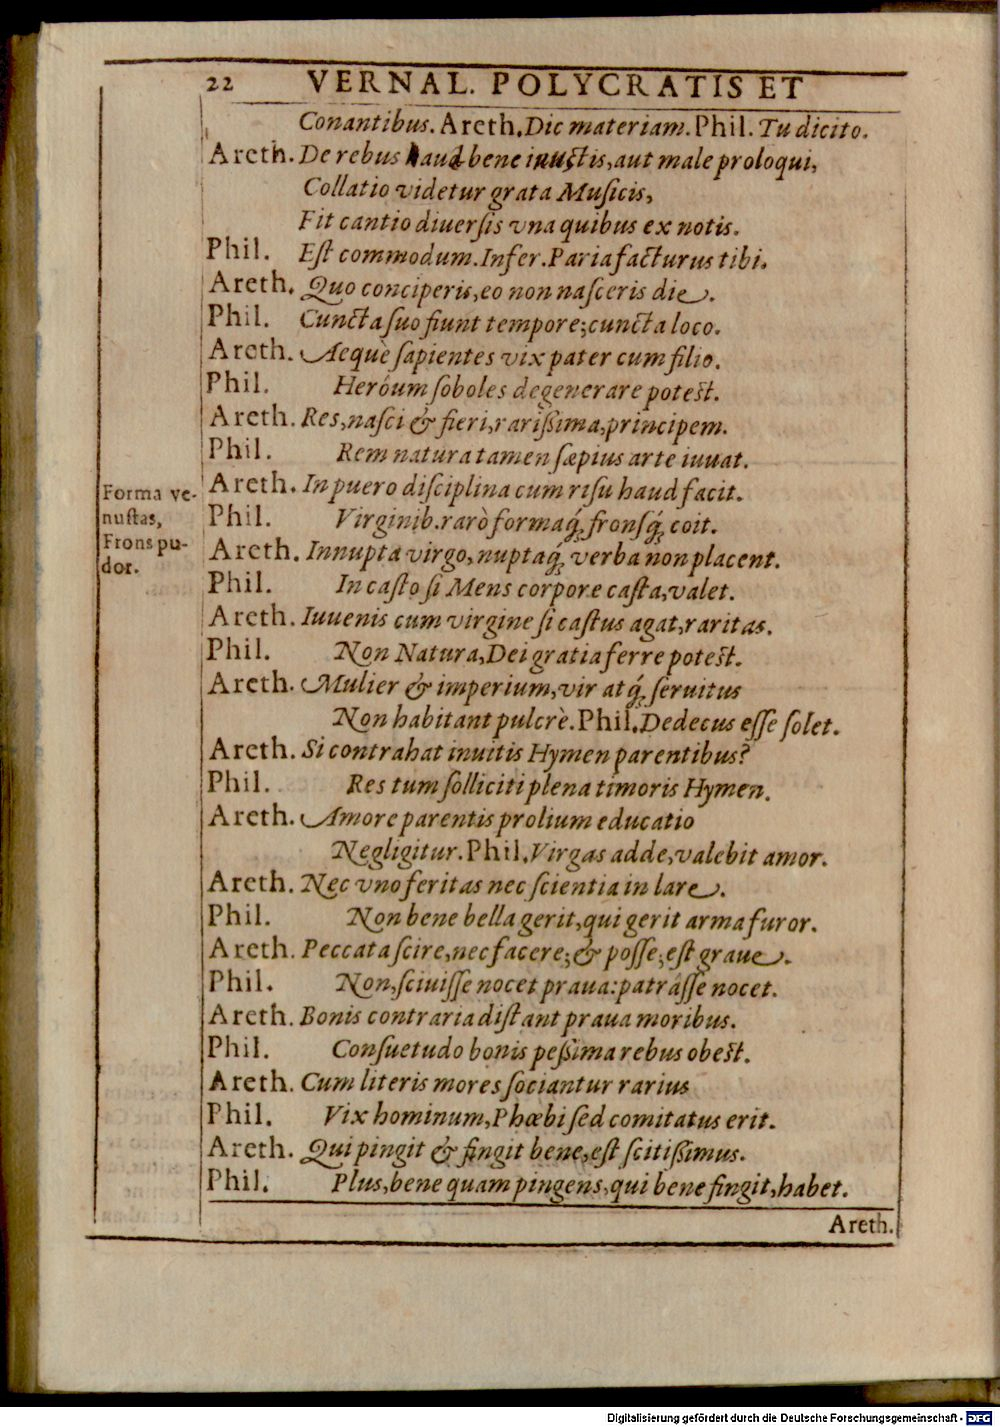 22 VERNAL. POLYCRATIS ET
Conantibus. Areth. Dic materiam. Phil. Tu dicito.
Areth. De rebus haud bene inuctis, aut male proloqui,
Collatio videtur grata Musicis,
Fit cantio diuersis vna quibus ex notis.
Phil. Est commodum. Infer. Paria facturus tibi.
Areth. Quo conciperis, eo non nasceris die.
Phil. Cuncta suo fiunt tempore; cuncta loco.
Areth. Aequè sapientes vix pater cum filio.
Phil. Heróum soboles degenerare potest.
Areth. Res, nasci & fieri, rarißima, principem.
Phil. Rem natura tamen sæpius arte iuuat.
Areth. In puero disciplina cum risu haud facit.
Phil. Virginib. rarò formaq́; fronsq́; coit.
Forma ve-
nustas,
Frons pu-
dor.
Areth. Innupta virgo, nuptaq́; verba non placent.
Phil. In casto si Mens corpore casta, valet.
Areth. Iuuenis cum virgine si castus agat, raritas.
Phil. Non Natura, Dei gratia ferre potest.
Areth. Mulier & imperium, vir atq́; seruitus
Non habitant pulcrè. Phil. Dedecus esse solet.
Areth. Si contrahat inuitis Hymen parentibus?
Phil. Res tum solliciti plena timoris Hymen.
Areth. Amore parentis prolium educatio
Negligitur. Phil. Virgas adde, valebit amor.
Areth. Nec vno feritas nec scientia in lare.
Phil. Non bene bella gerit, qui gerit arma furor.
Areth. Peccata scire, nec facere; & posse; est graue.
Phil. Non, sciuisse nocet praua: patrásse nocet.
Areth. Bonis contraria distant praua moribus.
Phil. Consuetudo bonis peßima rebus obest.
Areth. Cum literis mores sociantur rarius
Phil. Vix hominum, Phœbi sed comitatus erit.
Areth. Qui pingit & fingit bene, est scitißimus.
Phil. Plus, bene quam pingens, qui bene fingit, habet.
Areth.
Digitalisierung gefördert durch die Deutsche Forschungsgemeinschaft - DFG